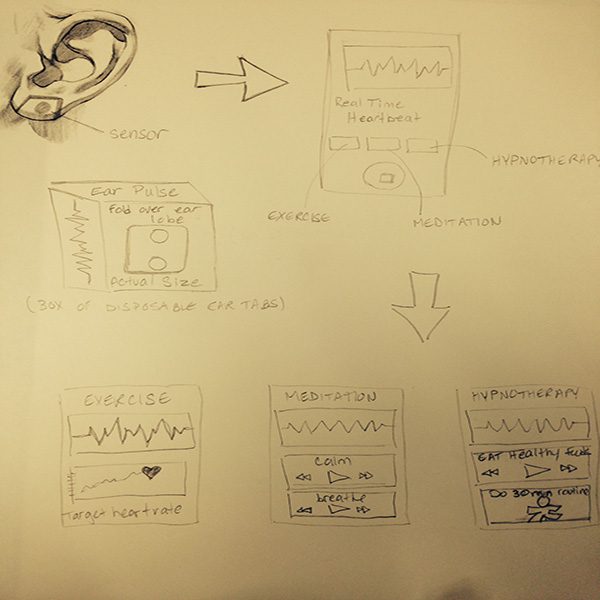 sensor
Real Time
Heartbeat
HYPNOTHERAPY
EXERCISE
MEDITATION
Ear Pulse
Fold over ear
lobe
Actual Size
(BOX OF DISPOSABLE EAR TABS)
EXERCISE
Target heartrate
MEDITATION
calm
breathe
HYPNOTHERAPY
EAT Healthy
Do 30 min routine